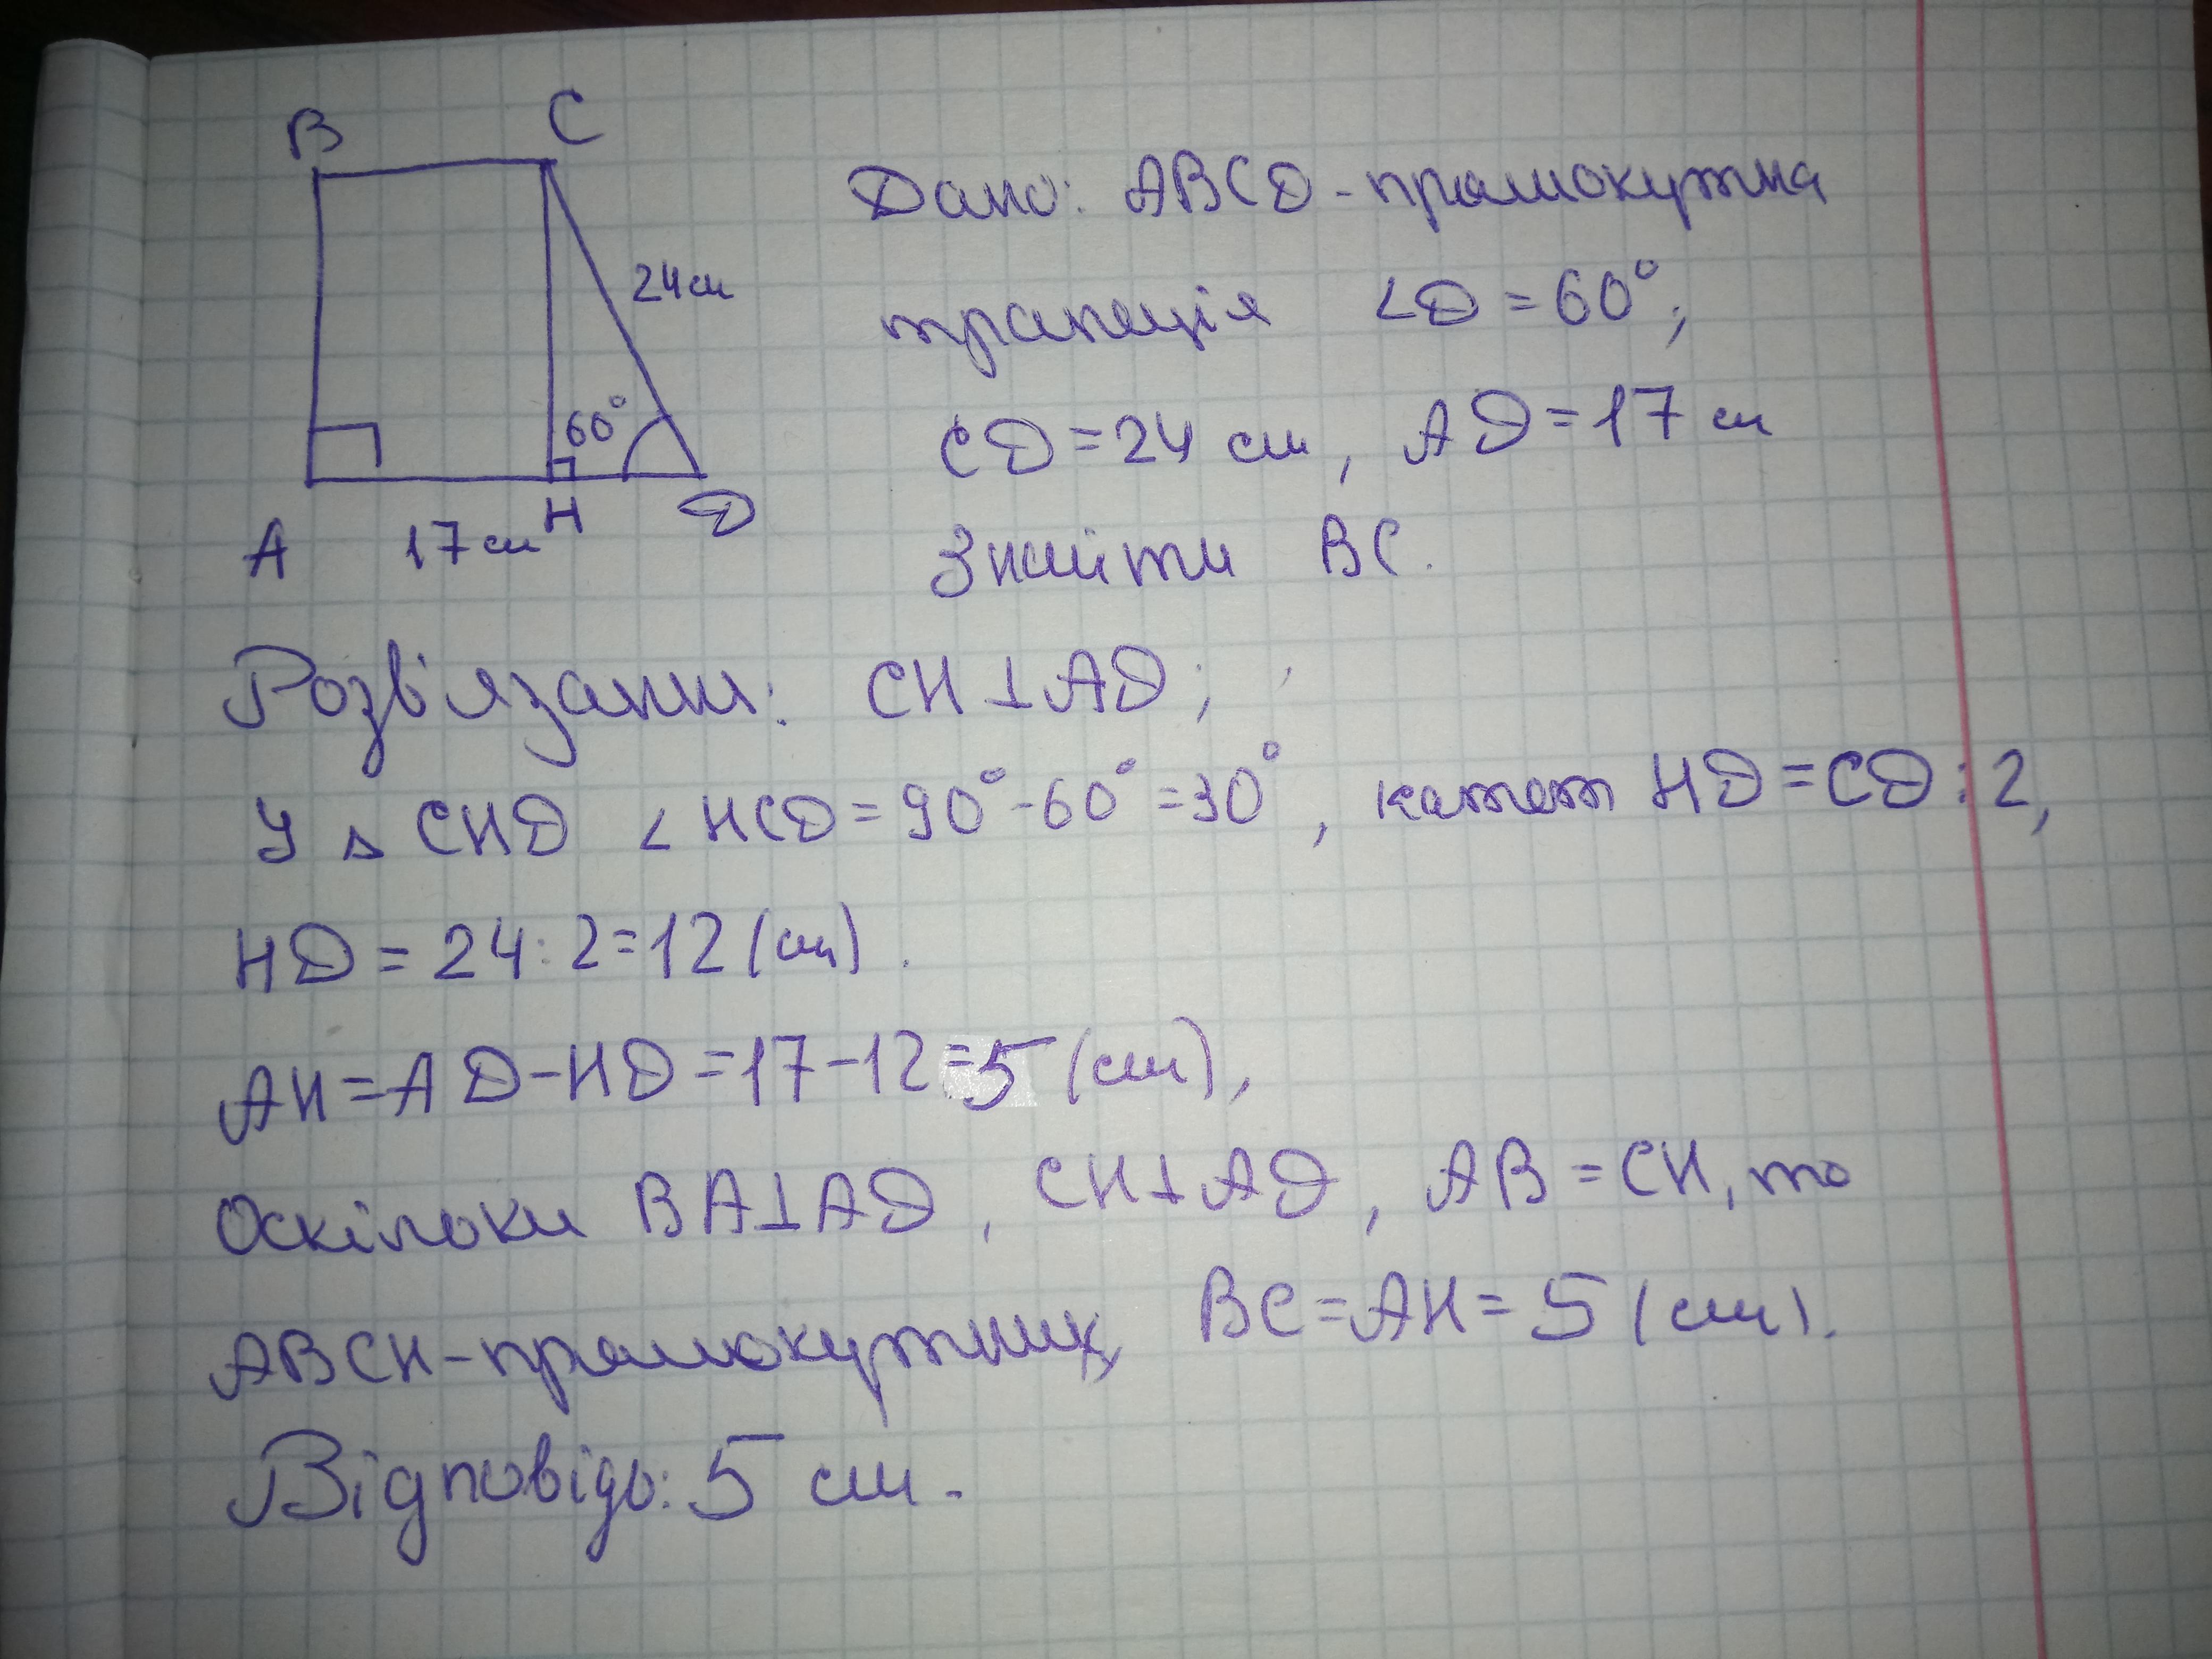 B C
Дано: ABCD - прямокутна
24см
трапеція ∠D = 60°;
60°
CD = 24 см, AD = 17 см
A 17 см H D
Знайти BC.
Розв'язання: CH ⊥ AD;
У △ CHD ∠ HCD = 90° - 60° = 30°, катет HD = CD : 2,
HD = 24 : 2 = 12 (см).
AH = AD - HD = 17 - 12 = 5 (см),
Оскільки BA ⊥ AD, CH ⊥ AD, AB = CH, то
ABCH - прямокутник, BC = AH = 5 (см).
Відповідь: 5 см.